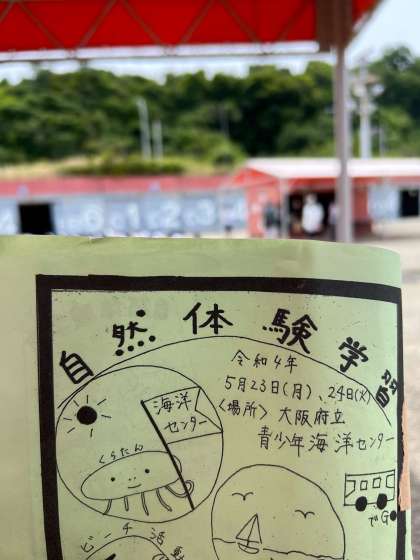 自然体験学習
令和4年
5月23日(月)、24日(火)
〈場所〉大阪府立
青少年海洋センター
海洋
センター
くらたん
でGo
ビーチ活動